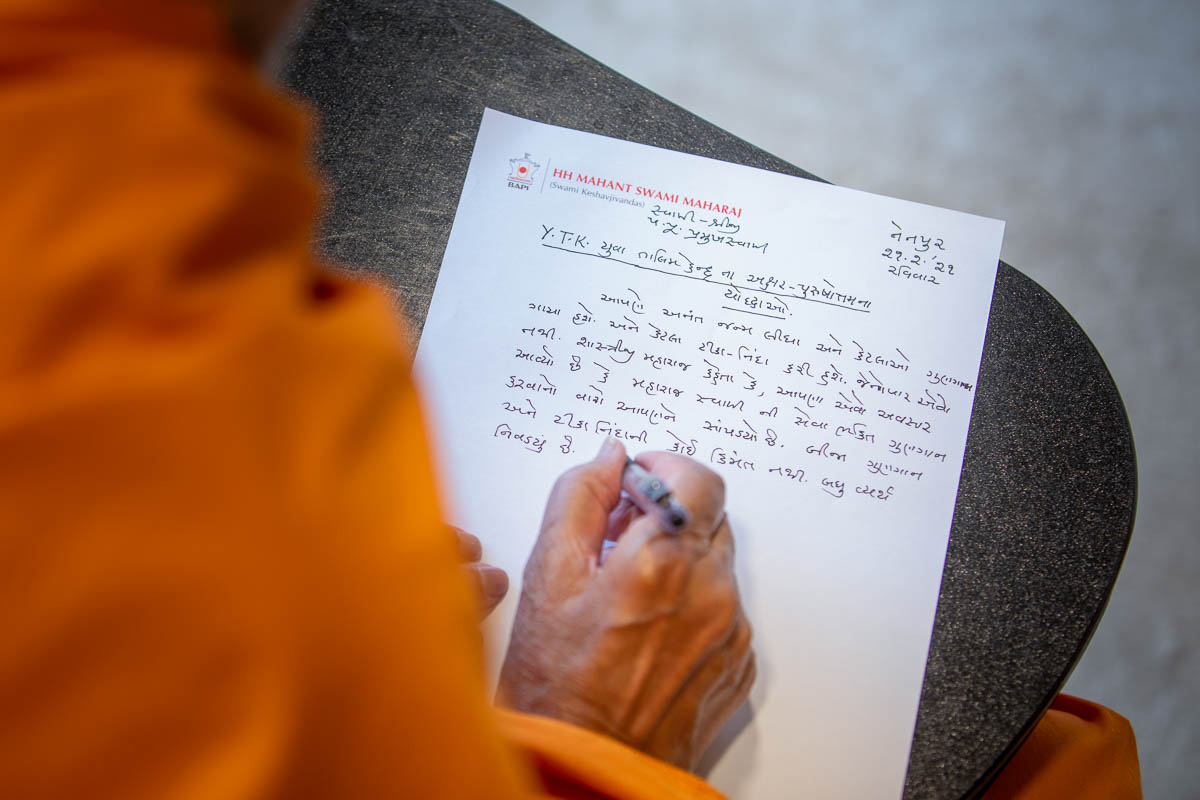 BAPS
HH MAHANT SWAMI MAHARAJ
(Swami Keshavjivandas)
સ્વામી-શ્રીજી
પ.પૂ. પ્રમુખસ્વામી
નેનપુર
૨૧.૨.'૨૧
રવિવાર
Y.T.K. યુવા તાલિમ કેન્દ્ર ના અક્ષર-પુરુષોત્તમના
યોદ્ધાઓ.
આપણે અનંત જન્મ લીધા અને કેટલાઓ ગુણગાન
ગાયા હશે. અને કેટલા ટીકા-નિંદા કરી હશે. જેનો પાર
નથી. શાસ્ત્રીજી મહારાજ કહેતા કે, આપણા એવો અવસર
આવ્યો છે કે મહારાજ સ્વામી ની સેવા ભક્તિ ગુણગાન
કરવાનો વારો આપણને સાંપડ્યો છે. બીજા ગુણગાન
અને ટીકા નિંદાની કોઈ કિંમત નથી. બધુ વ્યર્થ
નિવડ્યું છે.